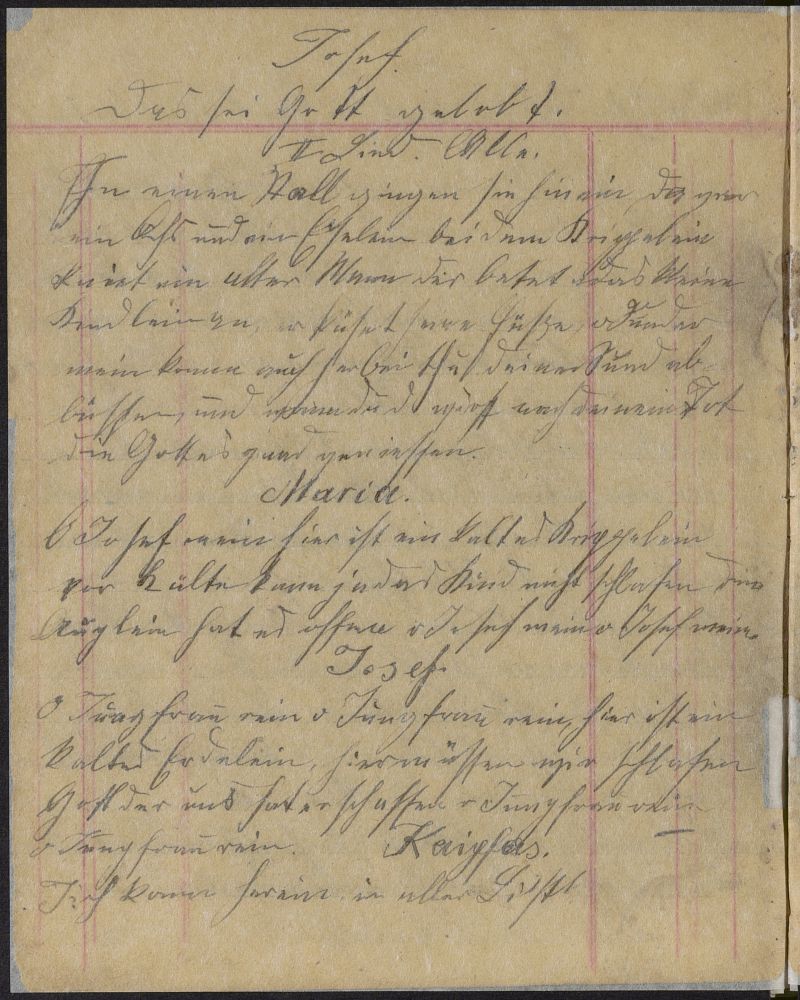 Josef
Das sei Gott gelobt.
II Lied. Alle.
In einen Stall gingen sie hinein, da war
ein Ochs und ein Eselein bei dem Krippelein
kniet ein alter Mann der betet das kleine
Kindlein an, er küset seine Füsze, o Sünder
mein komm auch herbei thu deine Sünd ab-
büssen, und wann du d wirst nach deinem Tot
die Gottes gnad geniessen.
Maria.
O Josef mein hier ist ein kaltes Krippelein
vor Kälte kann ja das Kind nicht schlafen die
Äuglein hat es offen o Josef mein o Josef mein.
Josef
O Jungfrau rein o Jungfrau rein, hier ist ein
kaltes Erdelein, hier müssen wir schlafen
Gott der uns hat erschaffen o Jungfrau rein
o Jungfrau rein. Kaiphas.
Ich komm herein in aller